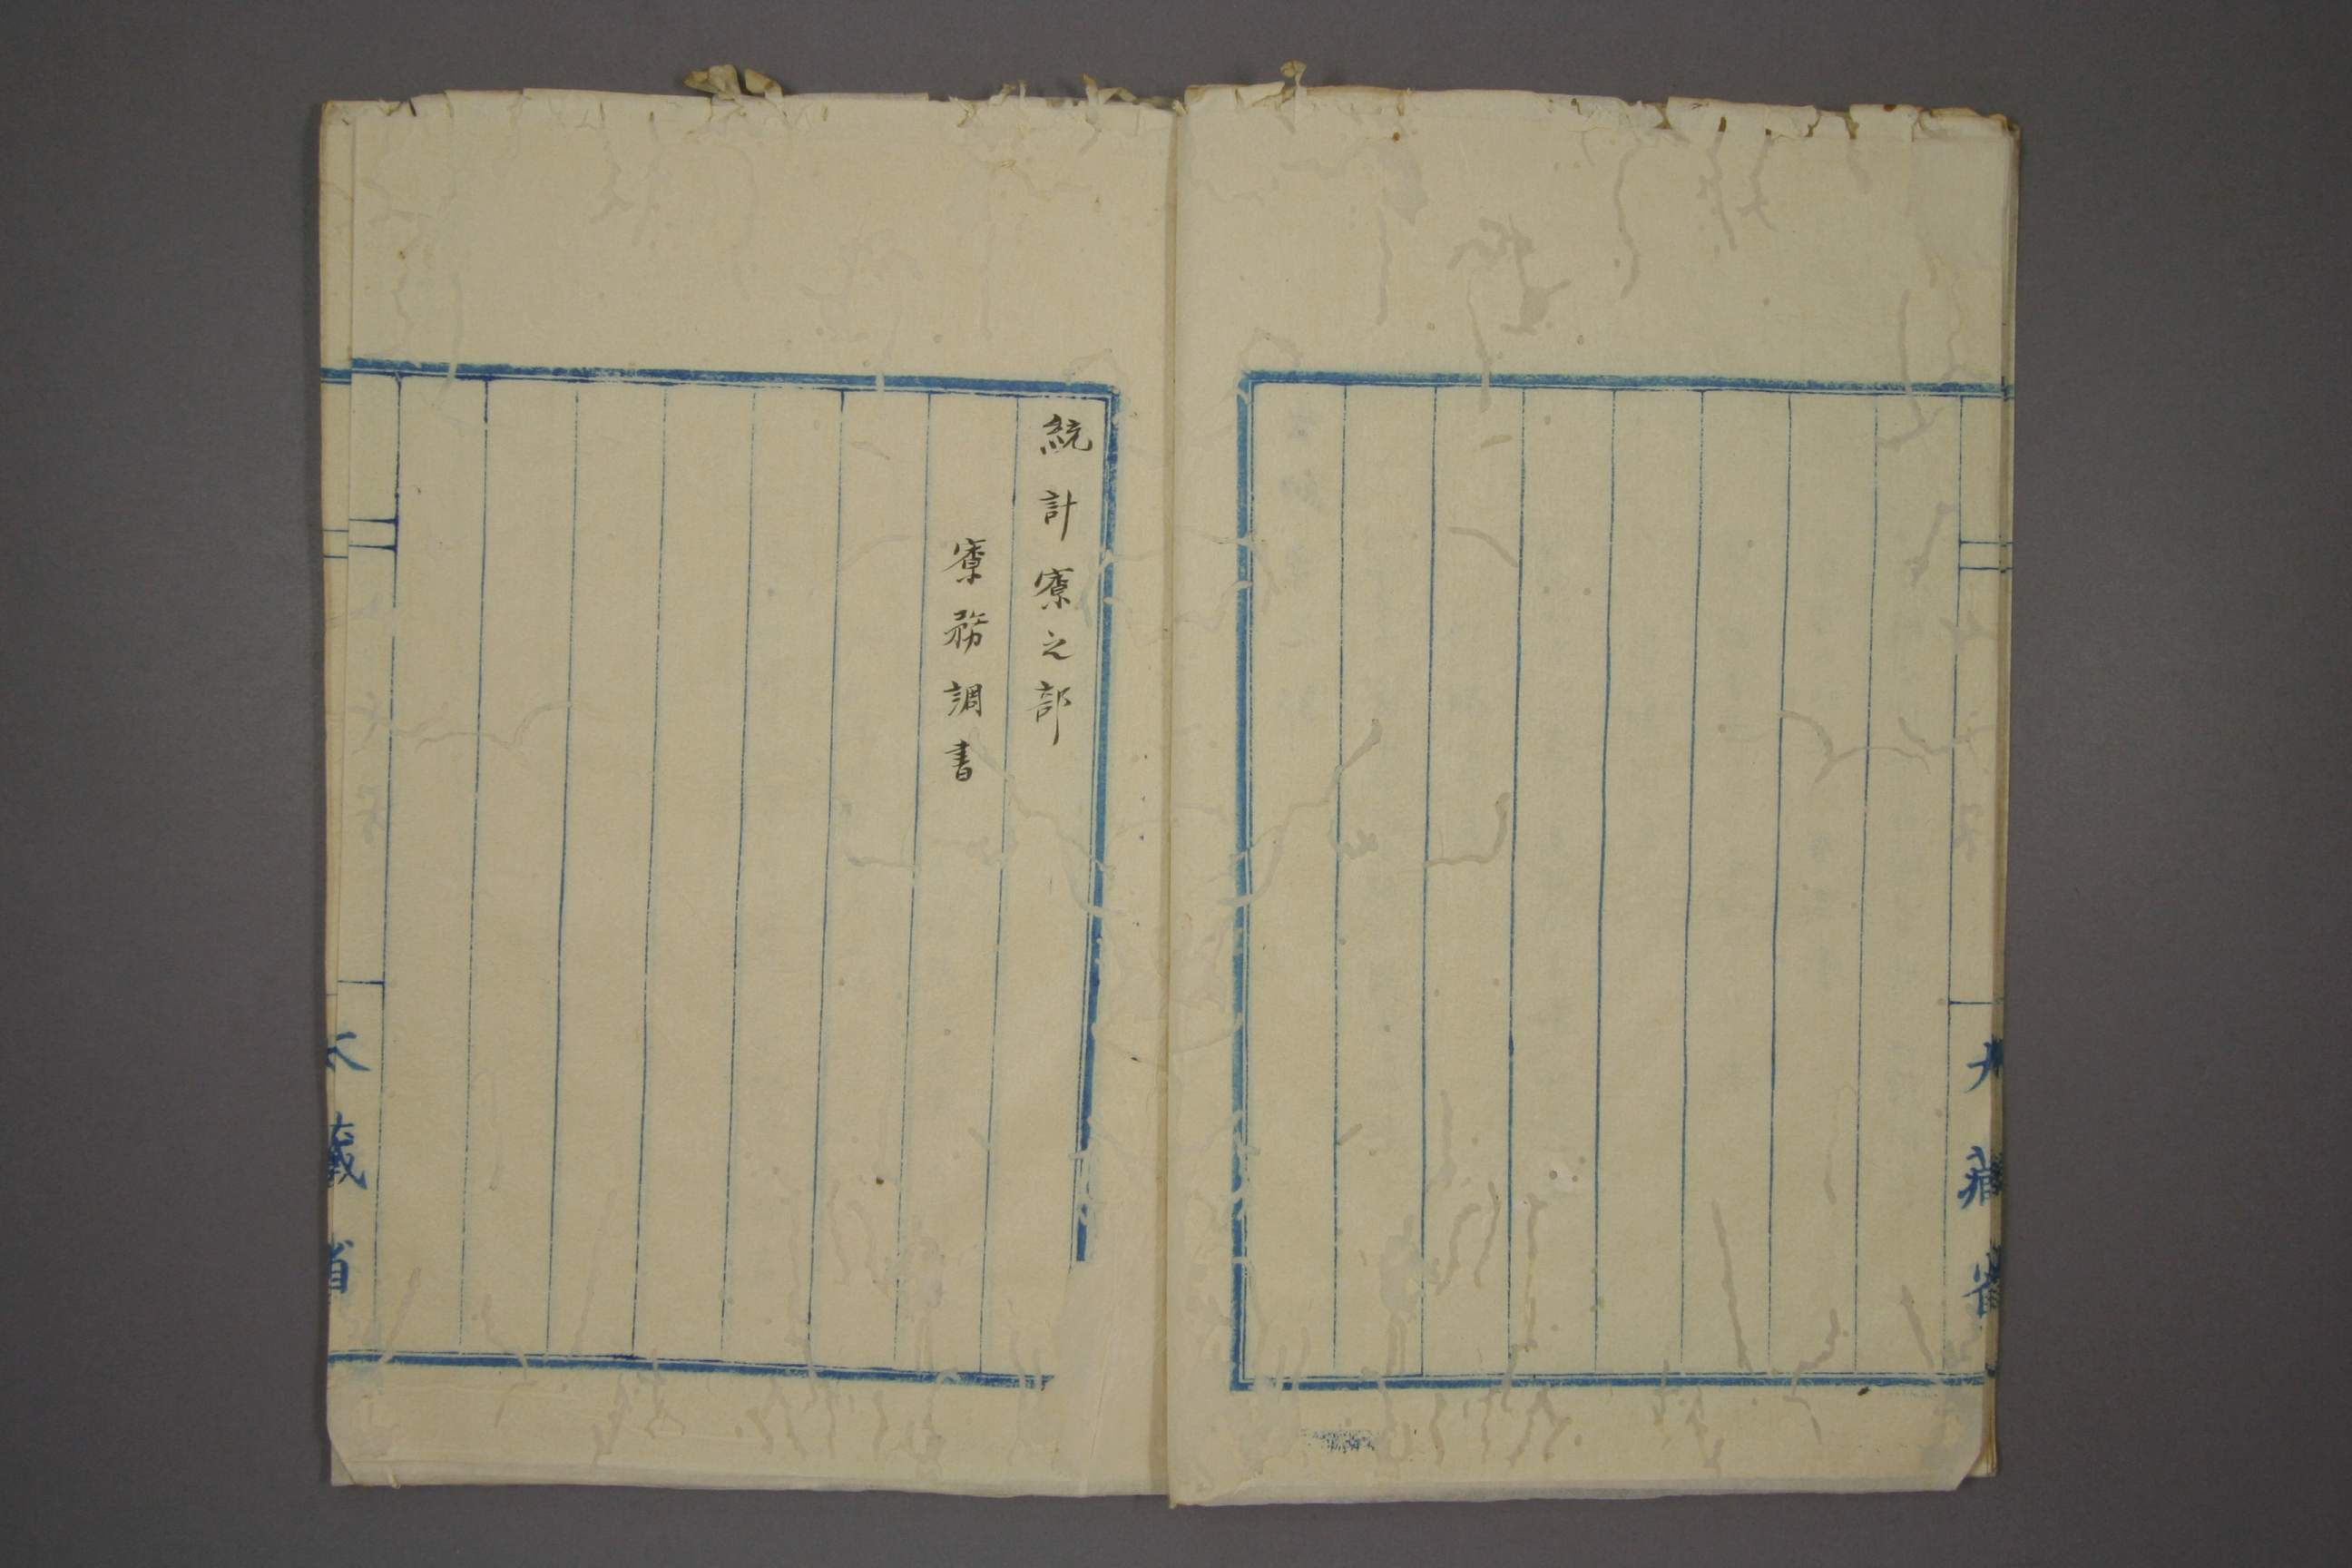 大藏省
統計寮之部
寮務調書
大藏省